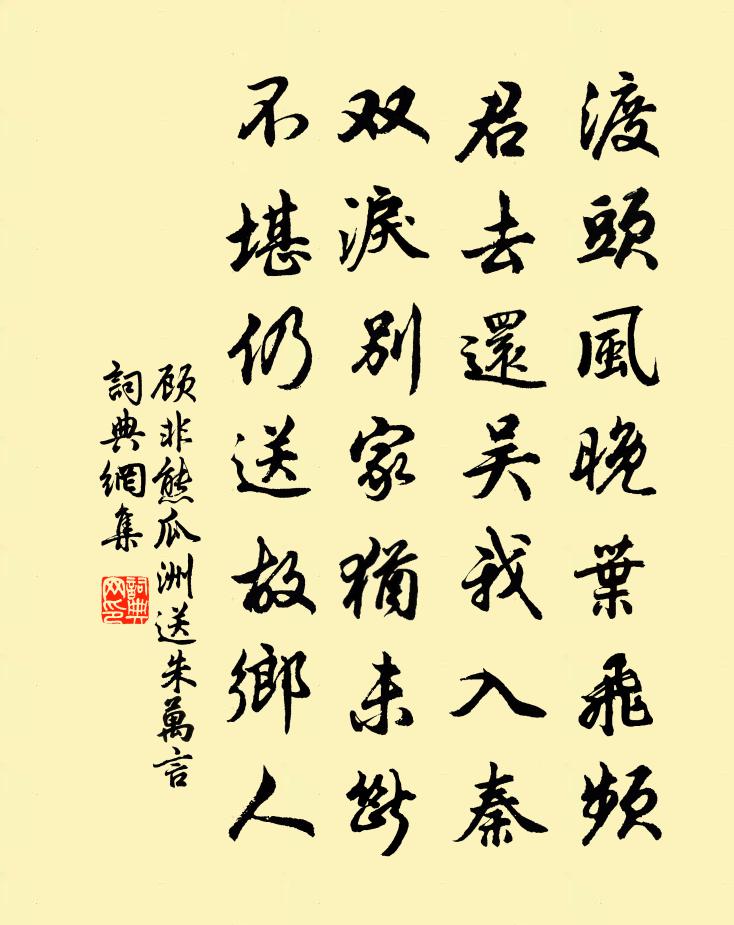 渡頭風晚葉飛頻
君去還吴我入秦
双淚別家猶未斷
不堪仍送故鄉人
顾非熊瓜洲送朱萬言
詞典網集